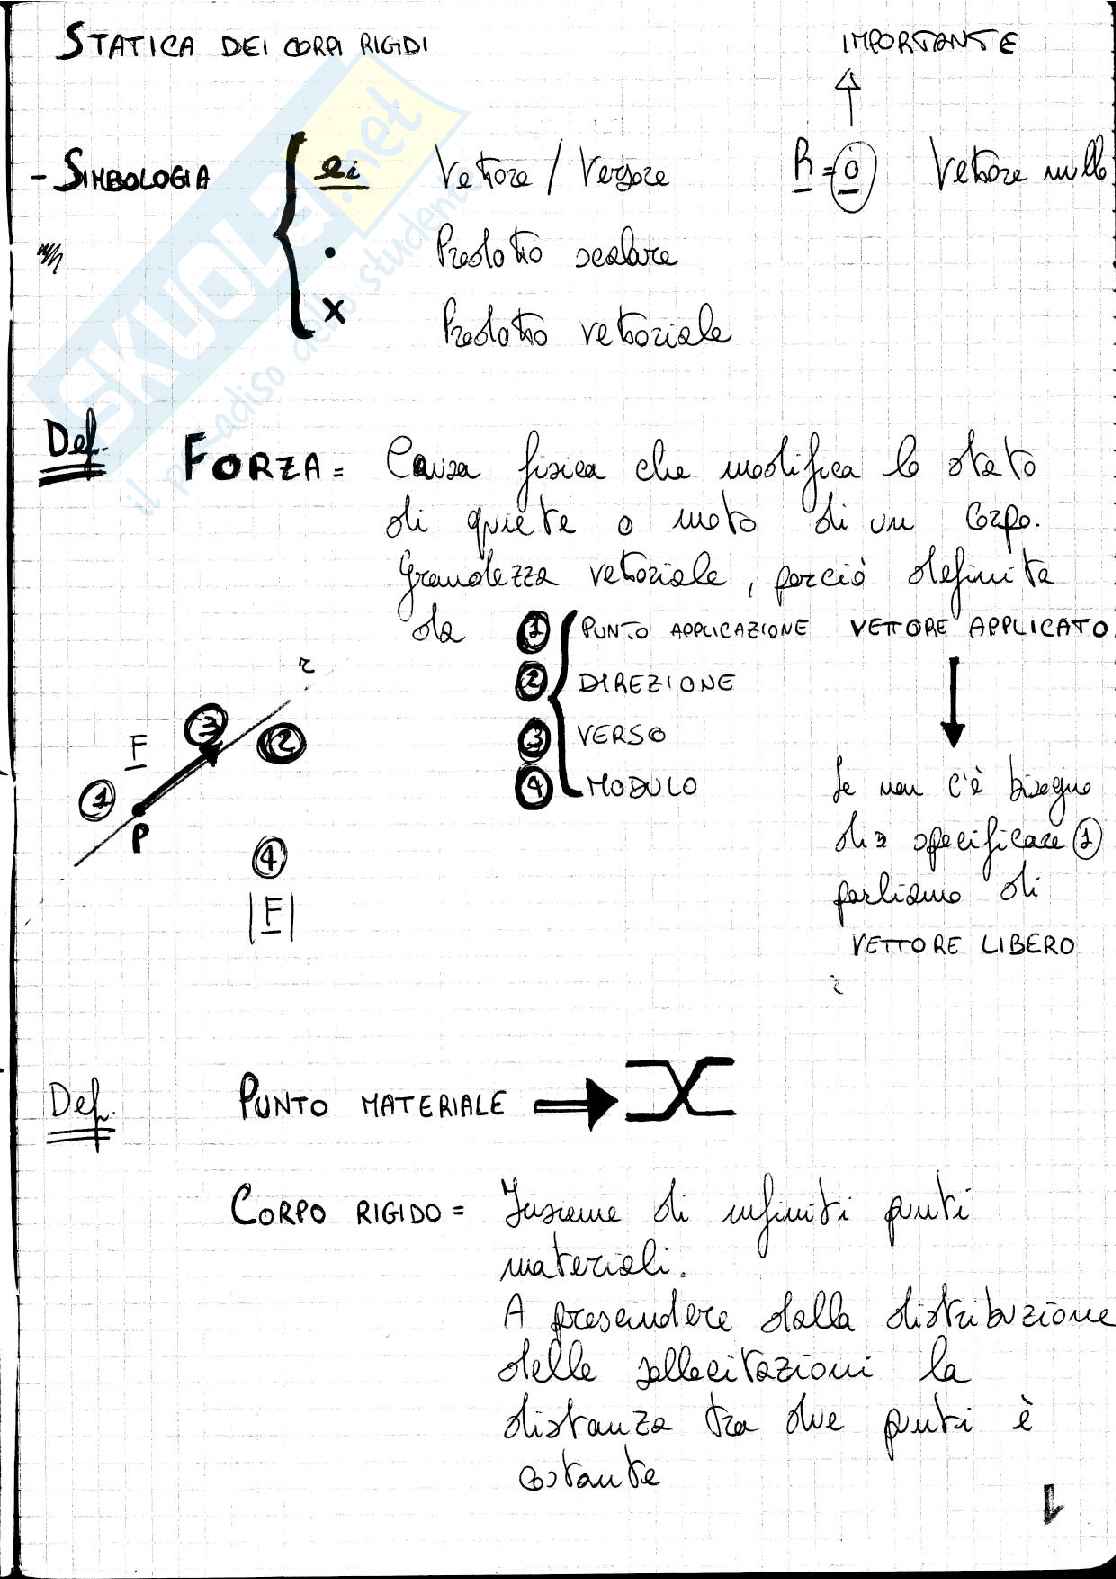 STATICA DEI CORPI RIGIDI
IMPORTANTE
- SIMBOLOGIA
ei Vettore / Versore
R = 0 Vettore nullo
• Prodotto scalare
x Prodotto vettoriale
SKUOLA.net
il paradiso dello studente
Def. FORZA = Causa fisica che modifica lo stato
di quiete o moto di un corpo.
Grandezza vettoriale, perciò definita
da
1 PUNTO APPLICAZIONE VETTORE APPLICATO
2 DIREZIONE
3 VERSO
4 MODULO
Se non c'è bisogno
di specificare 1
parliamo di
VETTORE LIBERO
r
F
3
2
1
P
4
|F|
Def. PUNTO MATERIALE
CORPO RIGIDO = Insieme di infiniti punti
materiali.
A prescindere dalla distribuzione
delle sollecitazioni la
distanza tra due punti è
costante
1